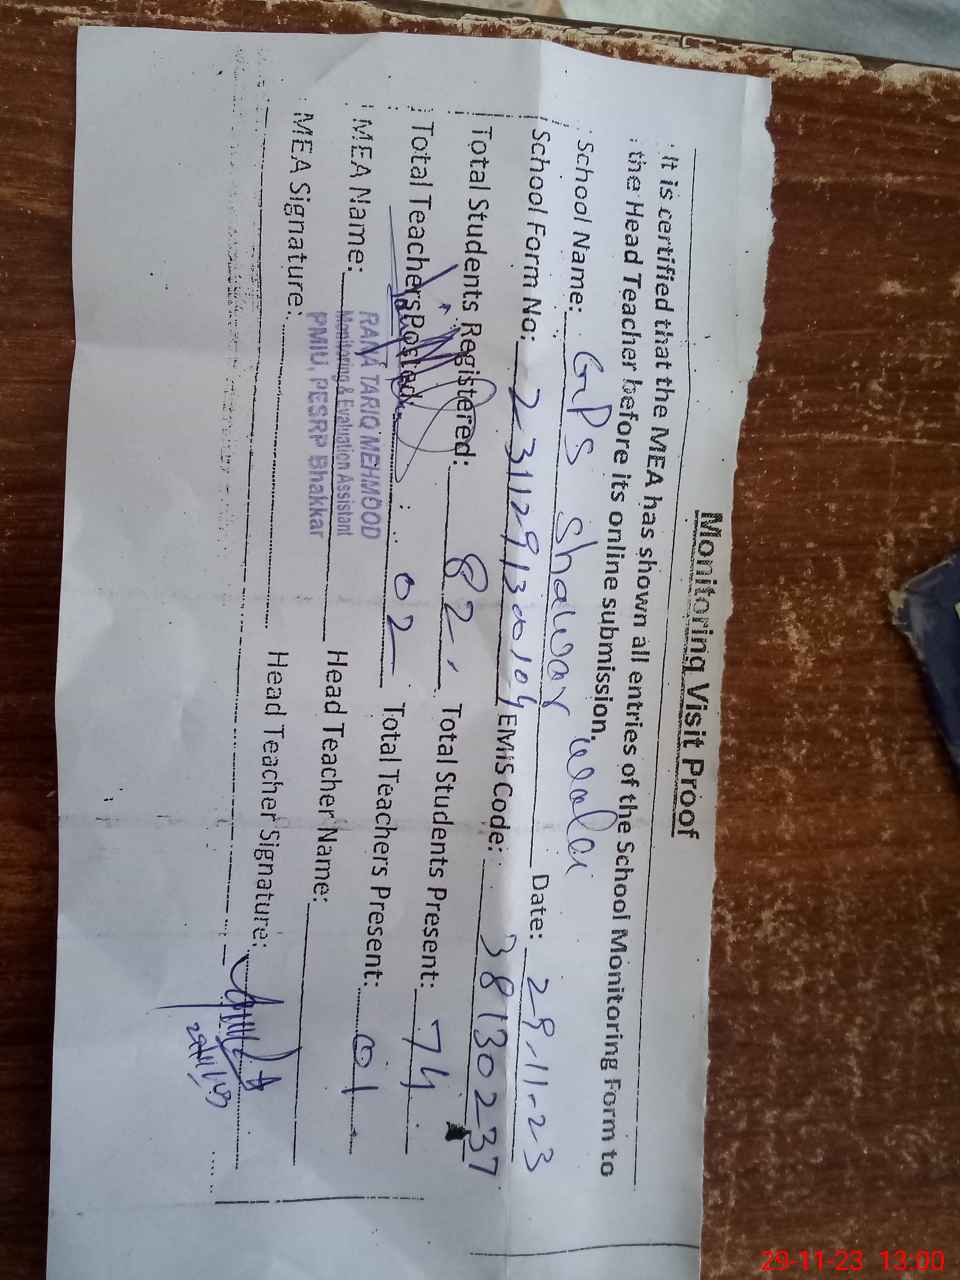 Monitoring Visit Proof
It is certified that the MEA has shown all entries of the School Monitoring Form to
the Head Teacher before its online submission.
School Name: GPS Shawar wala
School Form No: 2311291300104 Date: 29-11-23
EMIS Code: 38130237
Total Students Registered: 82 Total Students Present: 74
Total Teachers Posted: 02 Total Teachers Present: 01
MEA Name: RANA TARIQ MEHMOOD Head Teacher Name:
Monitoring & Evaluation Assistant
PMIU, PESRP Bhakkar
MEA Signature: Head Teacher Signature:
29/11/23
29-11-23 13:00